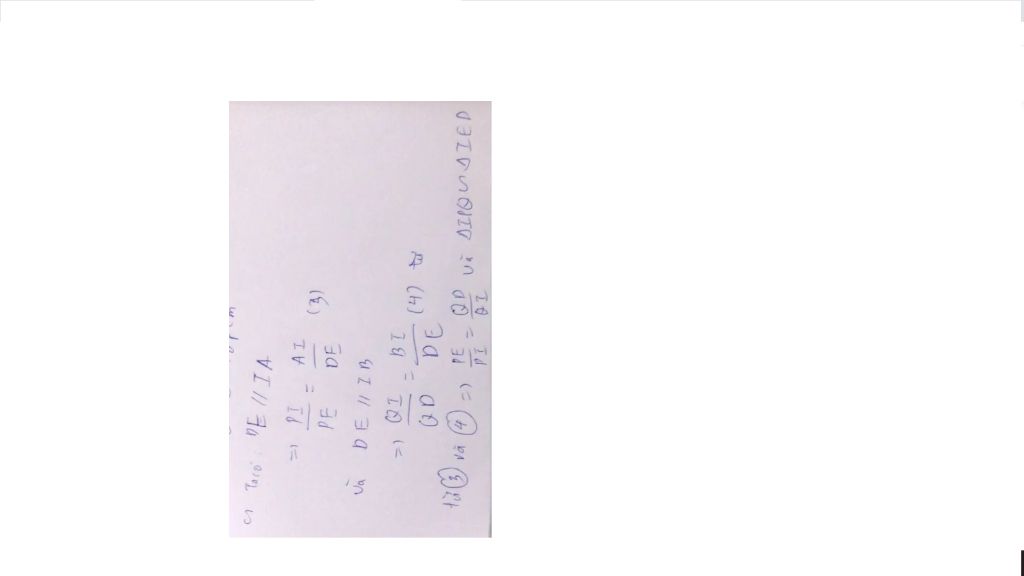 c) Ta có: DE // IA
=> PI/PE = AI/DE (3)
và DE // IB
=> QI/QD = BI/DE (4)
từ (3) và (4) => PE/PI = QD/QI và ΔIPQ ∽ ΔIED